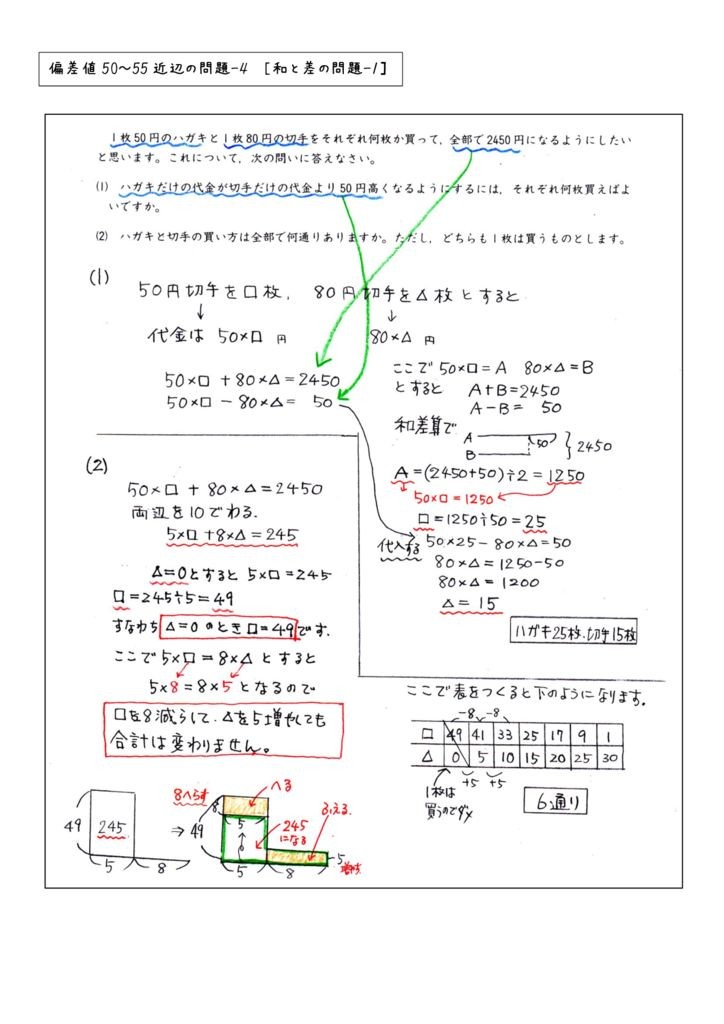 偏差値50〜55近辺の問題-4 [和と差の問題-1]
1枚50円のハガキと1枚80円の切手をそれぞれ何枚か買って，全部で2450円になるようにしたい
と思います。これについて，次の問いに答えなさい。
(1) ハガキだけの代金が切手だけの代金より50円高くなるようにするには，それぞれ何枚買えばよ
いですか。
(2) ハガキと切手の買い方は全部で何通りありますか。ただし，どちらも1枚は買うものとします。
(1)
50円切手を□枚, 80円切手を△枚とすると
↓ ↓
代金は 50×□ 円 80×△ 円
50×□ + 80×△ = 2450
50×□ - 80×△ = 50
ここで 50×□ = A 80×△ = B
とすると A+B=2450
A-B= 50
和差算で
A 50
B 2450
A = (2450+50)÷2 = 1250
50×□ = 1250
□ = 1250÷50 = 25
代入する 50×25 - 80×△ = 50
80×△ = 1250-50
80×△ = 1200
△ = 15
ハガキ25枚、切手15枚
(2)
50×□ + 80×△ = 2450
両辺を10でわる。
5×□ + 8×△ = 245
△=0とすると 5×□ = 245
□ = 245÷5 = 49
すなわち △=0 のとき □=49 です.
ここで 5×□ = 8×△ とすると
5×8 = 8×5 となるので
□を8減らして、△を5増やしても
合計は変わりません。
49 245 5 8
⇒ 8へらす へる 8 49 5 245になる ふえる 5 8 5 増やす
ここで表をつくると下のようになります.
-8 -8
□ 49 41 33 25 17 9 1
△ 0 5 10 15 20 25 30
+5 +5
1枚は
買うのでダメ
6通り